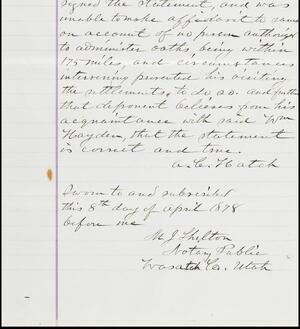 signed the statement, and was
unable to make affidavit to same
on account of no person authorized
to administer oaths, being within
175 miles, and circumstances
intervening prevented his visiting
the settlements, to do so. and further
that deponent believes from his
acquaintance with said Wm
Hayden, that the statement
is correct and true.
A. C. Hatch
Sworn to and subscribed
this 8th day of April 1878
before me
M J Shelton
Notary Public
Wasatch Co. Utah